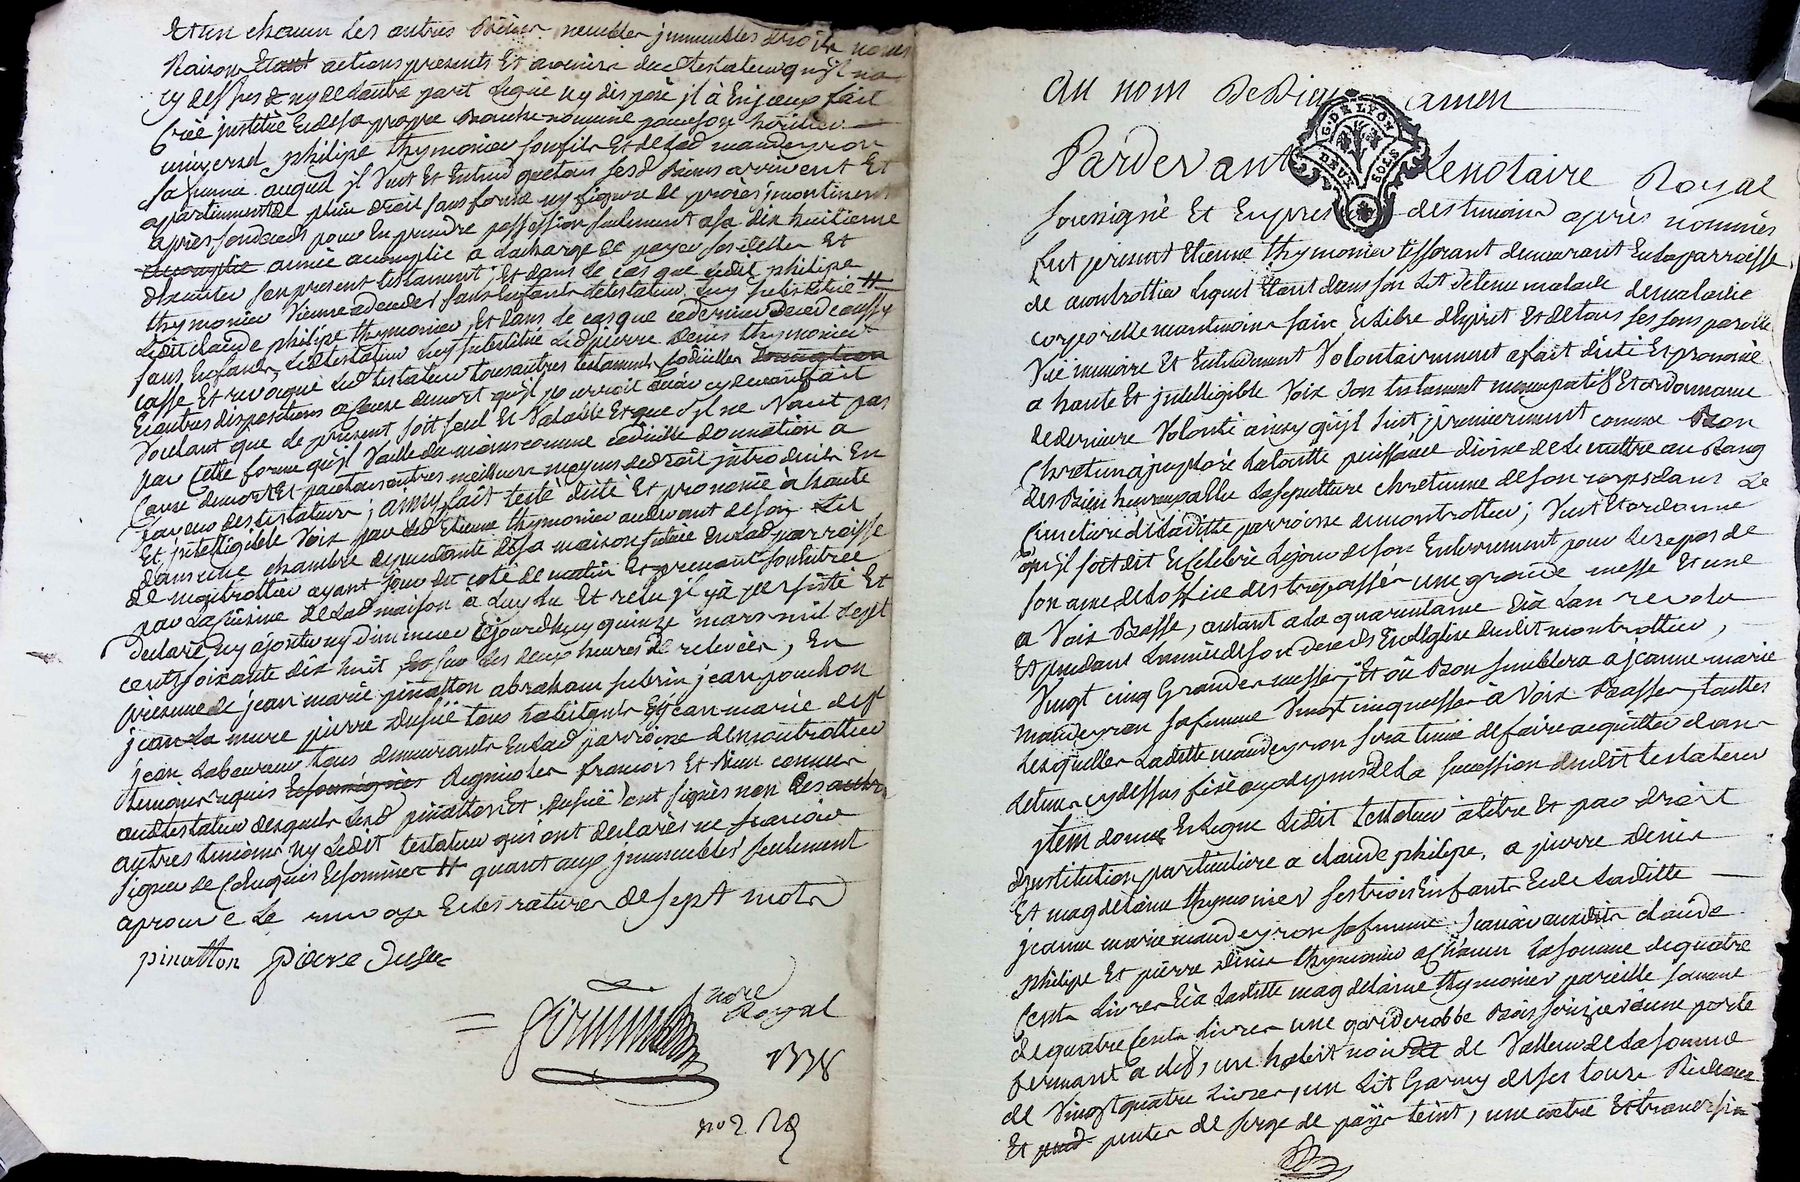 Et un chacun les autres Biens meubles jmmeubles droits noms
Raisons Et actions presents Et avenirs dud testateur qu'jl na
cy dessus & ny de d'autre part Legué ny disposé jl à Enjceux fait
Créé jnstitué Et de sa propre Bouche nommé pour son héritier
universel philipe thymonier son fils Et de lad maudeyron
sa femme auquel jl Veut Et Entend que tous sesd Biens arrivent Et
apartiennent de plein droit sans forme ny figure de procès jncontinent
après son deceds pour En prendre possession seulement a sa dix huitieme
année accomplie a la charge de payer ses dettes Et
d'Executer son present testament ; Et dans le cas que ledit philipe
thymonier Vienne a deceder sans Enfants le testateur luy substitue #
Ledit claude philipe thymonier, Et dans le cas que ce dernier decede aussy
sans Enfants, Ledit testateur luy substitue Led pierre denis thymonier
casse Et revoque Led testateur tous autres testaments codicilles donnation
Et autres dispositions a cause de mort qu'jl pourroit avoir cy devant fait
Voulant que le present soit seul Et Valable Et que s'jl ne Vaut pas
par cette forme qu'jl Vaille du moins comme codicille donnation a
Cause de mort Et par tous autres meilleurs moyens de droit jntroduits En
faveur des testateurs ; ainsy fait testé dicté Et prononcé à haute
Et jntelligible Voix par led Etienne thymonier au devant de son Lit
dans une chambre dependante de sa maison située En lad parroisse
de montrottier ayant jour du coté de matin Et prenant son Entrée
par la cuisine de lad maison à luy lu Et relu jl y à persisté Et
declaré ny ajouter ny diminuer cejourdhuy quinze mars mil Sept
cent soixante dix huit sur les deux heures de relevée, En
presence de jean marie pinatton abraham subrin jean pouchon
jean La mure pierre dusuë tous habitants Et jean marie
jean Laboureur tous demeurants En lad parroisse de montrottier
temoins requis Et soussignés Regnicoles francois Et Bien connus
audit testateur desquels Lesd pinatton Et dusuë ont signés non Les
autres temoins ny Ledit testateur qui ont declarés ne scavoir
signer de ce Enquis Et sommés # quant aux jmmeubles seulement
aprouvé Le renvoye Et les ratures de sept mots
pinatton pierre dusue
nore
Royal
1778
Au nom De Dieu amen
G. DE LYON
DEUX SOLS
Pardevant Le notaire Royal
soussigné Et En presence des temoins après nommés
fut present Etienne thymonier tisserant demeurant En la parroisse
de montrottier Lequel Etant dans son Lit detenu malade de maladie
corporelle neantmoins sain Et Libre d'Esprit Et de tous ses sens parolle
Vüe memoire Et Entendement Volontairement a fait dicté Et prononcé
a haute Et jntelligible Voix son testament nuncupatif Et ordonnance
de derniere Volonté ainsy qu'jl suit premierement comme Bon
Chretien a jmploré La toutte puissance divine de Le mettre au Rang
des Bien heureux, Esleu La sepulture chretienne de son corps dans Le
cimetiere de Laditte parroisse de montrottier ; Veut Et ordonne
qu'jl soit dit Et celebré Le jour de son Enterrement pour Le repos de
son ame de L'office des trepassés une grande messe Et une
a Voix Basse, autant a la quarantaine Et à L'an revolu
Et pendant L'année de son deceds En L'Eglise dudit montrottier,
Vingt cinq Grandes messes, Et où Bon semblera a jeanne marie
maudeyron sa femme Vingt cinq messes à Voix Basses, touttes
Lesquelles Laditte maudeyron sera tenue de faire acquitter dans
Le tems cy dessus fixé aux depens de La succession dudit testateur
jtem donne Et Legue Ledit testateur a titre Et par droit
d'jnstitution particuliere a claude philipe, a pierre denis
Et magdelaine thymonier ses trois Enfants Et de Laditte
jeanne marie maudeyron sa femme Scavoir auxdits claude
philipe Et pierre denis thymonier a chacun La somme de quatre
Cents Livres Et à Laditte magdelaine thymonier pareille somme
de quatre Cents Livres une garderobbe Bois serizier à une porte
fermant a clef, un habit noir de Valleur de La somme
de Vingt quatre Livres, un Lit Garny de ses tours Rideaux
Et pentes de serge de pays teint, une coëtre Et traversin